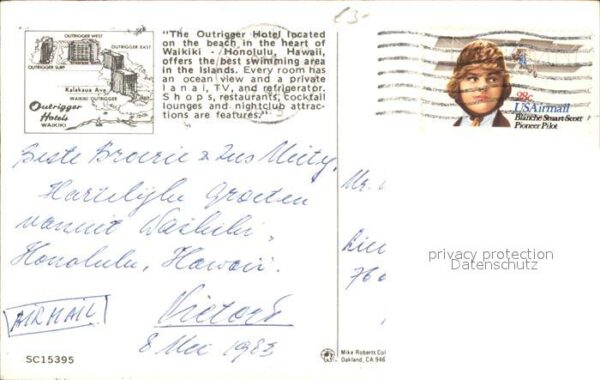 £3-
"The Outrigger Hotel located
on the beach in the heart of
Waikiki - Honolulu, Hawaii,
offers the best swimming area
in the Islands. Every room has
an ocean view and a private
lanai, TV, and refrigerator.
Shops, restaurants, cocktail
lounges and nightclub attrac-
tions are features."
OUTRIGGER WEST
OUTRIGGER EAST
OUTRIGGER SURF
Kalakaua Ave.
WAIKIKI OUTRIGGER
Outrigger
Hotels
WAIKIKI
28c
USAirmail
Blanche Stuart Scott
Pioneer Pilot
Beste Broerie & Zus Miety,
Hartelijke Groeten
vanuit Waikiki,
Honolulu, Hawaii.
Victor
8 Mei 1983
AIR MAIL
Mr.
privacy protection
Datenschutz
SC15395
Mike Roberts Col
Oakland, CA 946